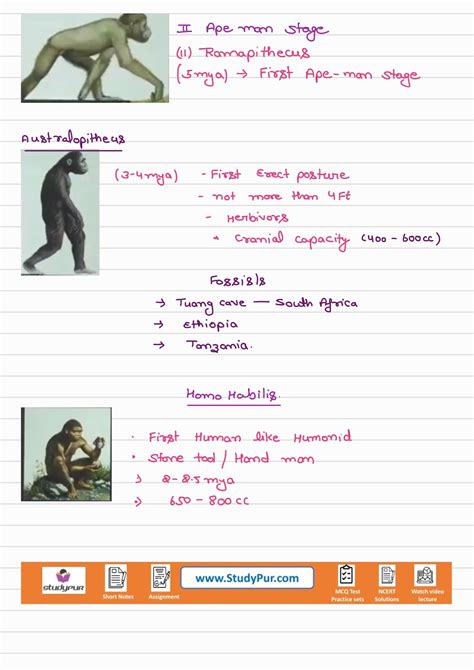 II Ape man stage
(11) Ramapithecus
(5mya) → First Ape-man stage
Australopitheus
(3-4mya) - First Erect posture
- not more than 4Ft
- Herbivors
* Cranial capacity (400 - 600cc)
Fossisls
→ Tuang cave — South Africa
→ Ethiopia
→ Tanzania.
Homo Habilis.
· First Human like Humonid
• Stone tool / Hand man
→ 2-2.5mya
→ 650 - 800cc
studypur
Short Notes
Assignment
www.StudyPur.com
MCQ Test
Practice sets
NCERT
Solutions
Watch video
lecture